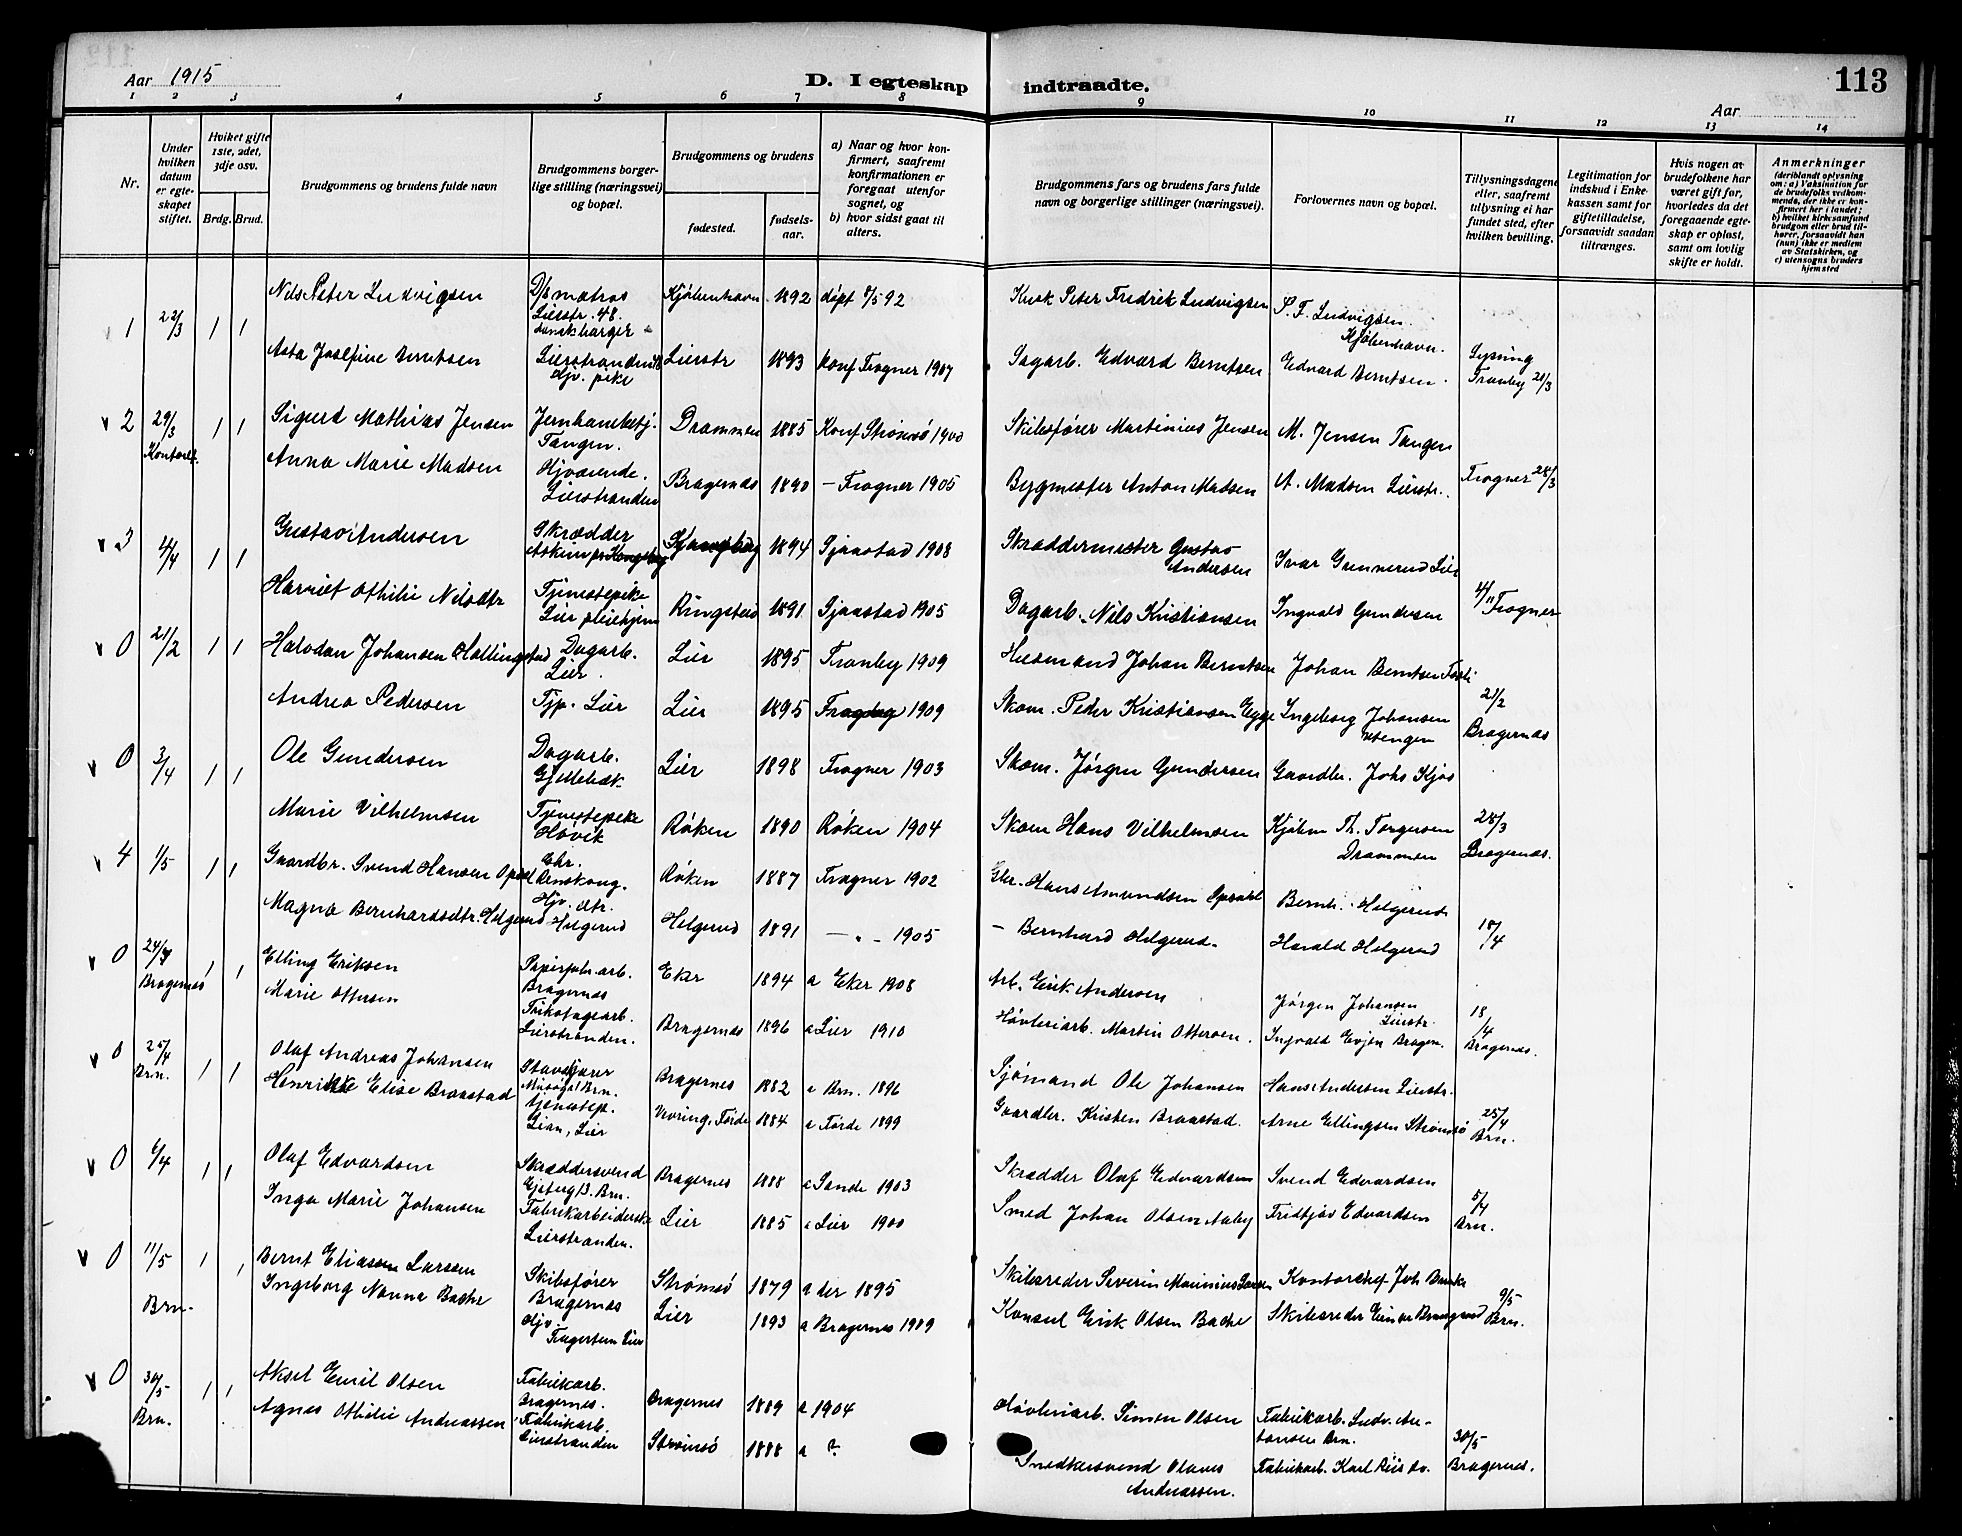 Aar 1915
D. I egteskap indtraadte.
113
Aar
1 2 3 4 5 6 7 8 9 10 11 12 13 14
Nr.
Under hvilken datum er egteskapet stiftet.
Hviket gifte 1ste, 2det, 3dje osv.
Brdg. Brud.
Brudgommens og brudens fulde navn
Brudgommens borgerlige stilling (næringsvei) og bopæl.
Brudgommens og brudens
fødested.
fødselsaar.
a) Naar og hvor konfirmert, saafremt konfirmationen er foregaat utenfor sognet, og
b) hvor sidst gaat til alters.
Brudgommens fars og brudens fars fulde navn og borgerlige stillinger (næringsvei).
Forlovernes navn og bopæl.
Tillysningsdagene eller, saafremt tillysning ei har fundet sted, efter hvilken bevilling.
Legitimation for indskud i Enkekassen samt for giftetilladelse, forsaavidt saadan tiltrænges.
Hvis nogen av brudefolkene har været gift før, hvorledes da det foregaaende egteskap er opløst, samt om lovlig skifte er holdt.
Anmerkninger (deriblandt oplysning om: a) Vaksination for de brudefolks vedkommende, der ikke er konfirmert her i landet; b) hvilket kirkesamfund brudgom eller brud tilhører, forsaavidt han (hun) ikke er medlem av Statskirken, og c) utensogns bruders hjemsted
1 22/3 1 1 Nils Peter Ludvigsen D/s matros Lierstr. 48. Kjøbenhavn 1892 døpt 8/5 92 Kusk Peter Fredrik Ludvigsen P. F. Ludvigsen Kjøbenhavn.
Asta Josefine Berntsen Lierstranden Hjv. pike Lierstr 1893 konf Frogner 1907 Sagarb. Edvard Berntsen Edvard Berntsen. Lysning Tranby 21/3
2 29/3 Kontoret. 1 1 Sigurd Mathias Jensen Jernbanebetj. Tangen. Drammen 1885 Konf Strømsø 1900 Skibsfører Martinius Jensen M. Jensen Tangen
Anna Marie Madsen Hjværende. Lierstranden Bragernæs 1890 - Frogner 1905 Bygmester Anton Madsen A. Madsen Lierstr. Frogner 28/3
3 4/4 1 1 Gustav Andersen Skrædder Askim pr Kongsberg Kongsberg 1894 Sjaastad 1908 Skræddermester Gustav Andersen Ivar Gunnerud Lier
Harriet Othilie Nilsdtr Tjenestepike Lier pleiehjem Ringstad 1891 Sjaastad 1905 Dagarb. Nils Kristiansen Ingvald Gundersen 4/4 Frogner
0 21/2 1 1 Halvdan Johansen Hallingstad Dagarb. Lier. Lier 1895 Tranby 1909 Husmand Johan Berntsen Johan Berntsen
Andrea Pedersen Tjp. Lier Lier 1895 1909 Skom. Peder Kristiansen Egge Ingeborg Johansen Stengen 21/2 Bragernæs
0 3/4 1 1 Ole Gundersen Dagarb. Gjellebæk. Lier 1898 Frogner 1903 Skom. Jørgen Gundersen Gaardbr. Johs Kjos
Marie Vilhelmsen Tjenestepike Høvik Røken 1890 Røken 1904 Skom Hans Vilhelmsen Kjøbm Th. Torgersen Drammen 28/3 Bragernæs.
4 1/5 1 1 Gaardbr. Svend Hansen Opsal Gbr. Renskoug. Røken 1887 Frogner 1902 Gbr. Hans Amundsen Opsahl Bernh. Helgerud
Magna Bernhardsdtr. Helgerud Hjv. dtr. Helgerud Helgerud 1891 - " - 1905 - Bernhard Helgerud. Harald Helgerud 18/4
0 24/4 Bragernæs 1 1 Elling Eriksen Papirfabr. arb. Bragernæs Eker 1894 a Eker 1908 Arb. Erik Andersen Jørgen Johansen Lierstr.
Marie Ottersen Trikotagearb. Lierstranden. Bragernæs 1896 a Lier 1910 Høvleriarb. Martin Ottersen. Ingvald Evjen Bragen. 18/4 Bragernæs.
0 25/4 Brn. 1 1 Olaf Andreas Johansen Brn. Bragernes 1882 a Brn. 1896 Sjømand Ole Johansen Hans Andersen Lierstr.
Henrikke Elise Braastad tjenestep. Lian, Lier Vevring, Førde 1884 a Førde 1899 Gaardbr. Kristen Braastad. Arne Ellingsen Strømsø 25/4 Brn.
0 6/4 1 1 Olaf Edvardsen Skræddersvend Brn. Bragernes 1888 a Sande 1903 Skrædder Olaf Edvardsen Svend Edvardsen
Inga Marie Johansen Fabrikarbeiderske Lierstranden. Lier 1885 a Lier 1900 Smed Johan Olsen Aaby Fridtjov Edvardsen 5/4 Brn.
0 11/5 Brn. 1 1 Bernt Eliassen Larssen Skibsfører Bragernæs Strømsø 1879 a der 1895 Skibsreder Severin Marinius Larssen Kontorchef Joh Bache
Ingeborg Nanna Bache Hjv. Lier Lier 1893 a Bragernes 1909 Konsul Erik Olsen Bache Skibsreder 9/5 Brn.
0 30/5 Brn. 1 1 Aksel Emil Olsen Fabrikarb. Bragernes. Bragernes 1889 a 1904 Høvleriarb. Simen Olsen Fabrikarb. Ludv. Antonsen Brn.
Agnes Othilie Andreassen Fabrikarb. Lierstranden Strømsø 1888 a ?. Snedkersvend Olaves Andreassen. Fabrikarb. Karl Riis do. 30/5 Bragernes.